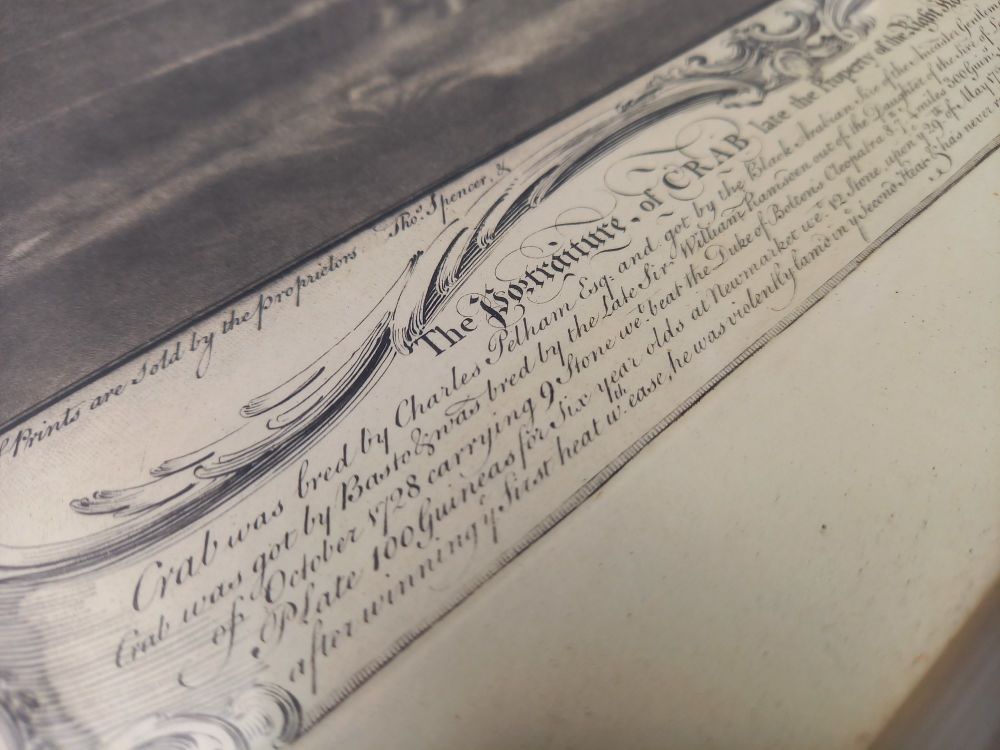 Prints are Sold by the proprietors Thos. Spencer, &
The Portraiture of CRAB late the Property of the Right
Crab was bred by Charles Pelham Esqr. and got by the Black Arabian Sire of the Ancaster Gentlem
Crab was got by Basto & was bred by the Late Sir William Ramsden out of the Daughter of the Sire of
of October 1728 carrying 9 Stone wt. beat the Duke of Boltons Cleopatra 8.7. 4 miles 300 Guins.
Plate 100 Guineas for Six year olds at Newmarket wt. 12 Stone upon ye 29th. of May
after winning ye First heat wth. ease, he was violently lam'd in ye Second Heat & has never